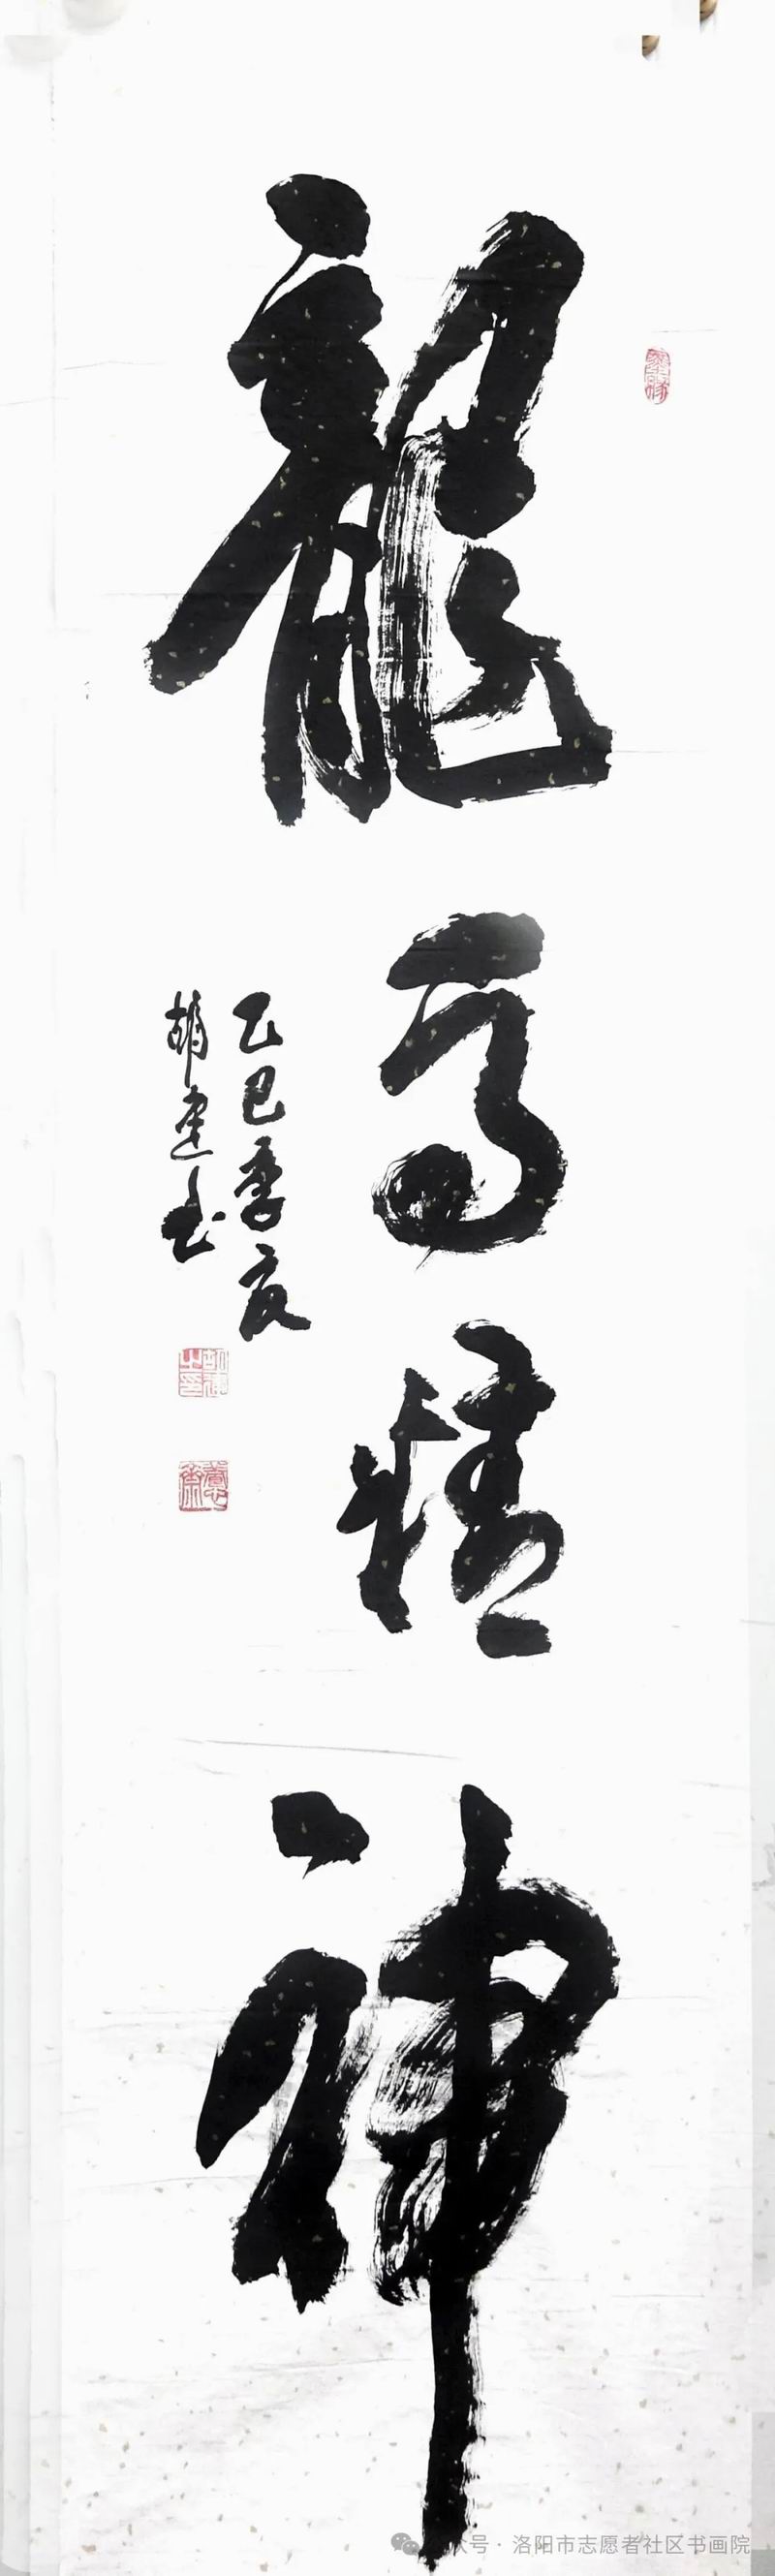 龍马精神
乙巳季夏
胡建书
胡建之印
公众号·洛阳市志愿者社区书画院